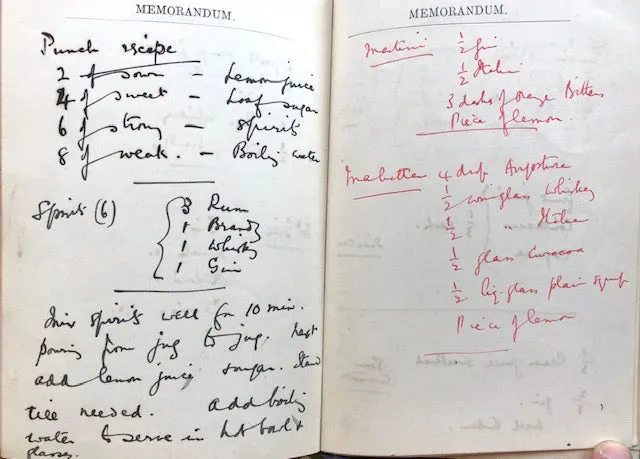 MEMORANDUM.
Punch recipe
2 of sour - Lemon juice
4 of sweet - Loaf sugar
6 of strong - spirits
8 of weak. - Boiling water
Spirits (6)
3 Rum
1 Brandy
1 Whisky
1 Gin
Mix spirits well for 10 min.
pouring from jug to jug. Next
add lemon juice sugar. Stand
till needed. Add boiling
water to serve in hot bowl &
glasses.
MEMORANDUM.
Martini ½ gin
½ Italian
3 dashes of orange Bitters
Piece of lemon.
Manhattan 4 drops Angostura
½ wineglass Whiskey
½ " Italian
½ glass Curacoa
½ liq. glass plain syrup
Piece of lemon